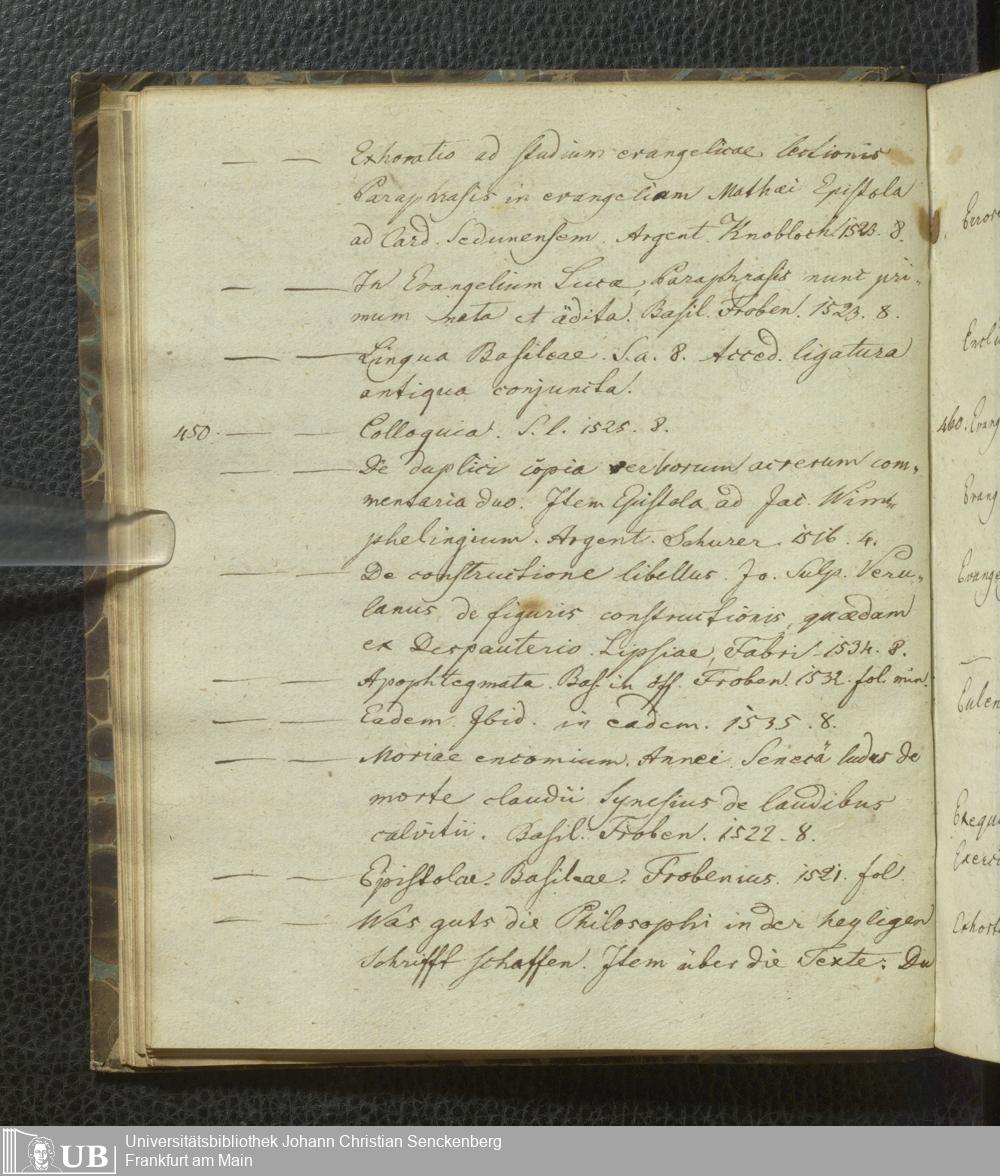 — — Exhoratio ad studium evangelicae lectionis
Paraphrasis in evangelium Mathäi Epistola
ad Card. Sedunensem. Argent. Knobloch. 1523. 8.
— — In Evangelium Lucæ, Paraphrasis nunc pri„
mum nata et ädita. Basil. Froben. 1523. 8.
— — Lingua Basileae. S. a. 8. Acced. ligatura
antiqua conjuncta.
450. — — Colloquia. S. l. 1525. 8.
— — De duplici copia verborum ac rerum com„
mentaria duo. Item Epistola ad Jac. Wim„
phelingium. Argent. Schurer. 1516. 4.
— — De constructione libellus. Jo. Sulp. Veru„
lanus de figuris constructionis, quædam
ex Despauterio. Lipsiae, Fabri. 1534. 8.
— — Apophtegmata. Bas. in off. Froben. 1532. fol. min.
— — Eadem. Ibid. in eadem. 1535. 8.
— — Moriae encomium. Annei Senecä ludus de
morte claudii Synesius de laudibus
calvitii. Basil. Froben. 1522. 8.
— — Epistolae. Basileae. Frobenius. 1521. fol.
— — Was guts die Philosophi in der heyligen
Schrifft schaffen. Item über die Texte: Du
460. Evang
Evang
Evange
Eulen
Exequi
Exerci
Exhort
UB
Universitätsbibliothek Johann Christian Senckenberg
Frankfurt am Main